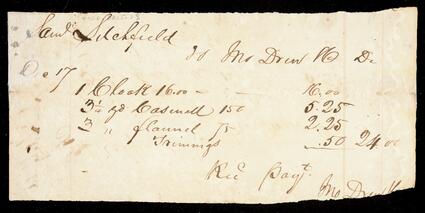 Saml Litchfield
To Jno Drew Dr
Dec 17
1 Cloak 16.00 — 16.00
3½ yd Casmell 150 5.25
3 " flannel 75 2.25
Trimmings .50 24.00
Recd Payt.
Jno Drew